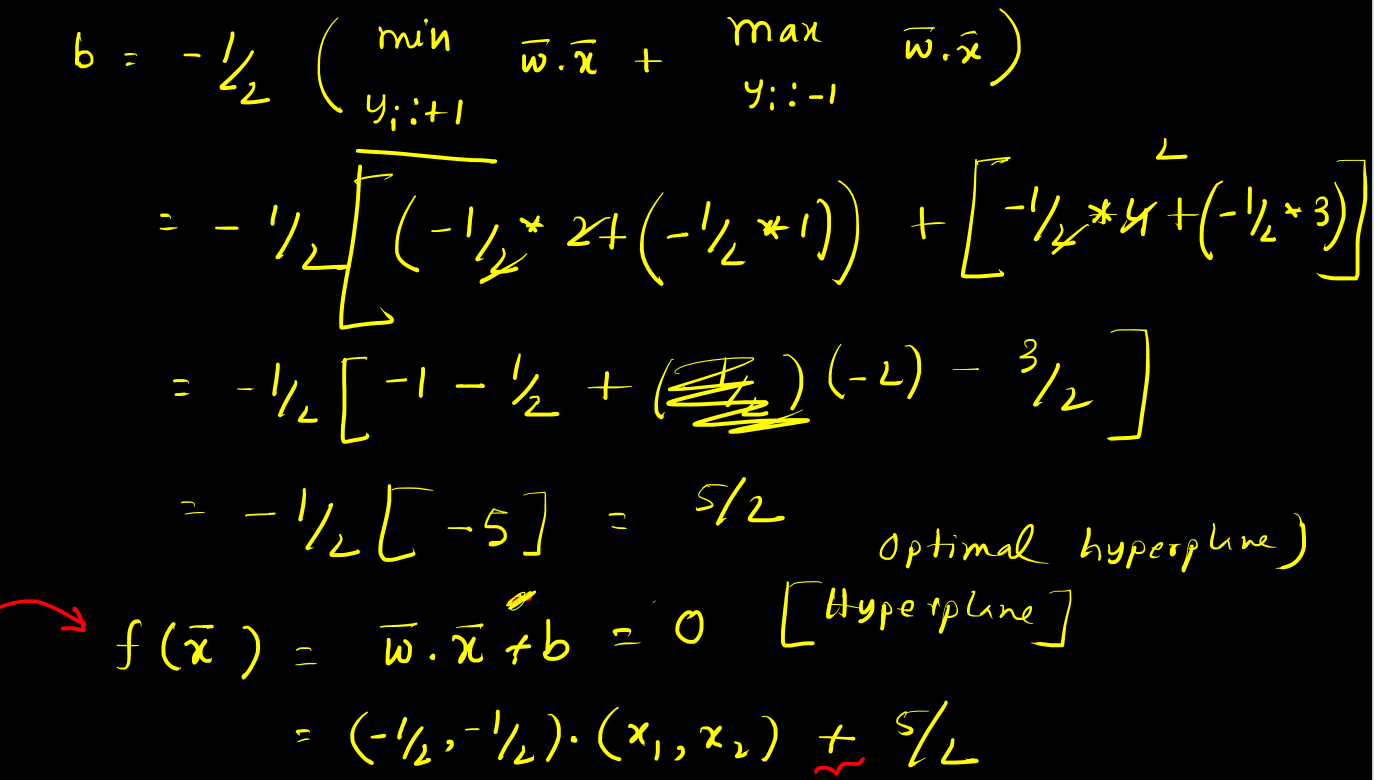 b = -1/2 ( min w̅.x̅ + max w̅.x̅ )
yᵢ:+1 yᵢ:-1
= -1/2 [ ( -1/2 * 2 + ( -1/2 * 1 ) ) + [ -1/2 * 4 + ( -1/2 * 3 ) ]
2
= -1/2 [ -1 - 1/2 + ( ) (-2) - 3/2 ]
= -1/2 [ -5 ] = 5/2
optimal hyperplane )
f(x̅) = w̅.x̅ + b = 0 [ Hyperplane ]
= (-1/2, -1/2).(x₁, x₂) + 5/2